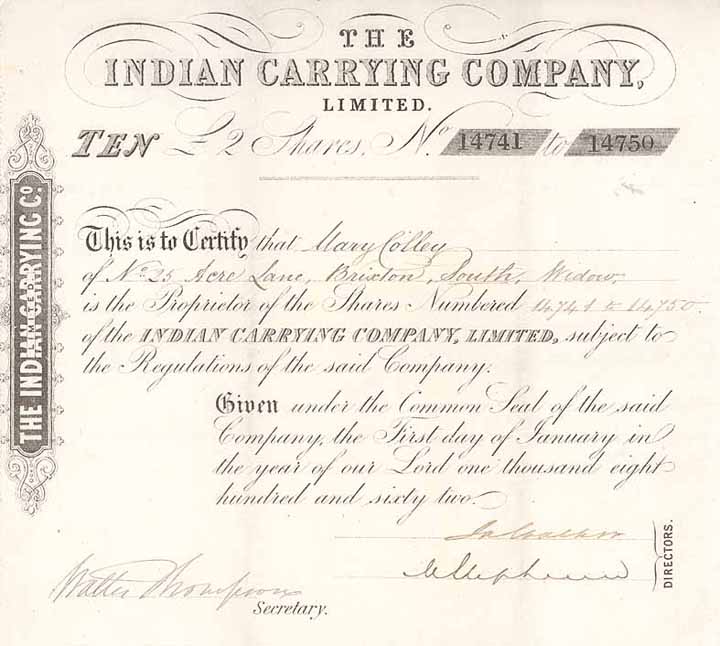 THE
INDIAN CARRYING COMPANY,
LIMITED.
TEN £2 Shares. No. 14741 to 14750
THE INDIAN CARRYING Co.
This is to Certify that Mary Colley
of No. 25 Acre Lane, Brixton, South, Widow,
is the Proprietor of the Shares Numbered 14741 to 14750.
of the INDIAN CARRYING COMPANY, LIMITED, subject to
the Regulations of the said Company.
Given under the Common Seal of the said
Company, the First day of January in
the year of our Lord one thousand eight
hundred and sixty two.
DIRECTORS.
Walter Thompson
Secretary.